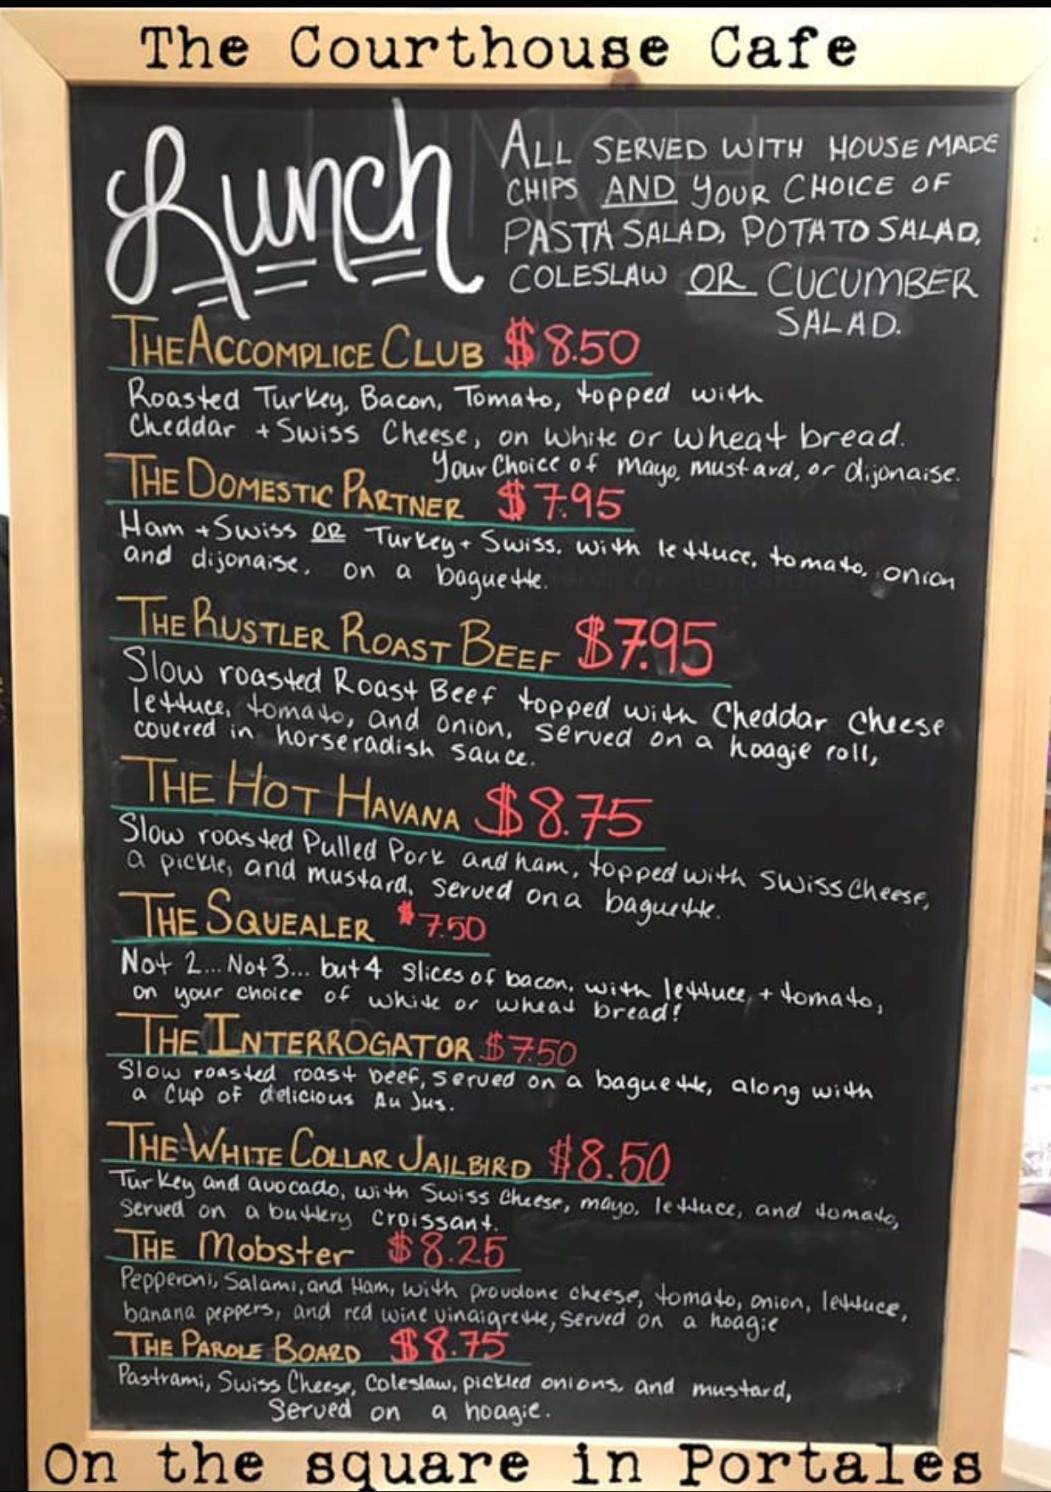 The Courthouse Cafe
Lunch
ALL SERVED WITH HOUSE MADE
CHIPS AND YOUR CHOICE OF
PASTA SALAD, POTATO SALAD,
COLESLAW OR CUCUMBER
SALAD.
THE ACCOMPLICE CLUB $8.50
Roasted Turkey, Bacon, Tomato, topped with
Cheddar + Swiss Cheese, on white or wheat bread.
Your Choice of mayo, mustard, or dijonaise.
THE DOMESTIC PARTNER $7.95
Ham + Swiss OR Turkey + Swiss. with lettuce, tomato, onion
and dijonaise. on a baguette.
THE RUSTLER ROAST BEEF $7.95
Slow roasted Roast Beef topped with Cheddar Cheese
lettuce, tomato, and onion, served on a hoagie roll,
covered in horseradish sauce.
THE HOT HAVANA $8.75
Slow roasted Pulled Pork and ham, topped with swiss cheese,
a pickle, and mustard, served on a baguette.
THE SQUEALER $7.50
Not 2... Not 3... but 4 slices of bacon, with lettuce, + tomato,
on your choice of white or wheat bread!
THE INTERROGATOR $7.50
Slow roasted roast beef, served on a baguette, along with
a cup of delicious Au Jus.
THE WHITE COLLAR JAILBIRD $8.50
Turkey and avocado, with Swiss Cheese, mayo, lettuce, and tomato,
Served on a buttery croissant.
THE Mobster $8.25
Pepperoni, Salami, and Ham, with provolone cheese, tomato, onion, lettuce,
banana peppers, and red wine vinaigrette, served on a hoagie
THE PAROLE BOARD $8.75
Pastrami, Swiss Cheese, Coleslaw, pickled onions, and mustard,
Served on a hoagie.
On the square in Portales